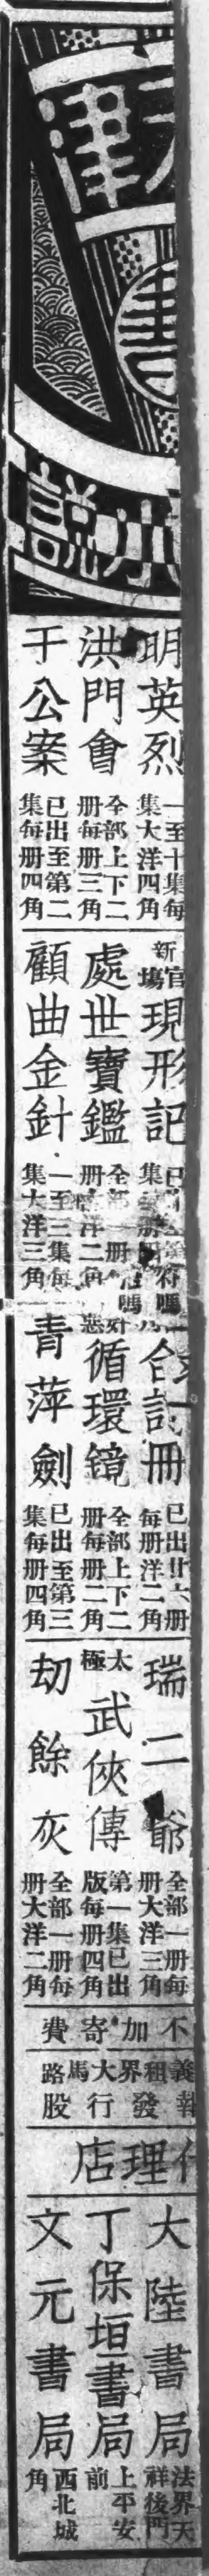 津
小說
明英烈
一至十集每
集大洋四角
洪門會
全部上下二
册每册三角
于公案
已出至第二
集每册四角
新官塲現形記
處世寶鑑
顧曲金針
一至三集每
集大洋三角
合訂冊
已出廿六册
每册洋二角
善惡循環鏡
全部上下二
册每册二角
青萍劍
已出至第三
集每册四角
瑞二爺
全部一册每
册大洋三角
太極武俠傳
第一集已出
版每册四角
劫餘灰
全部一册每
册大洋二角
不加寄費
義租界大馬路
報發行股
代理店
大陸書局
法界天
祥後門
丁保垣書局
上平安
前
文元書局
西北城
角